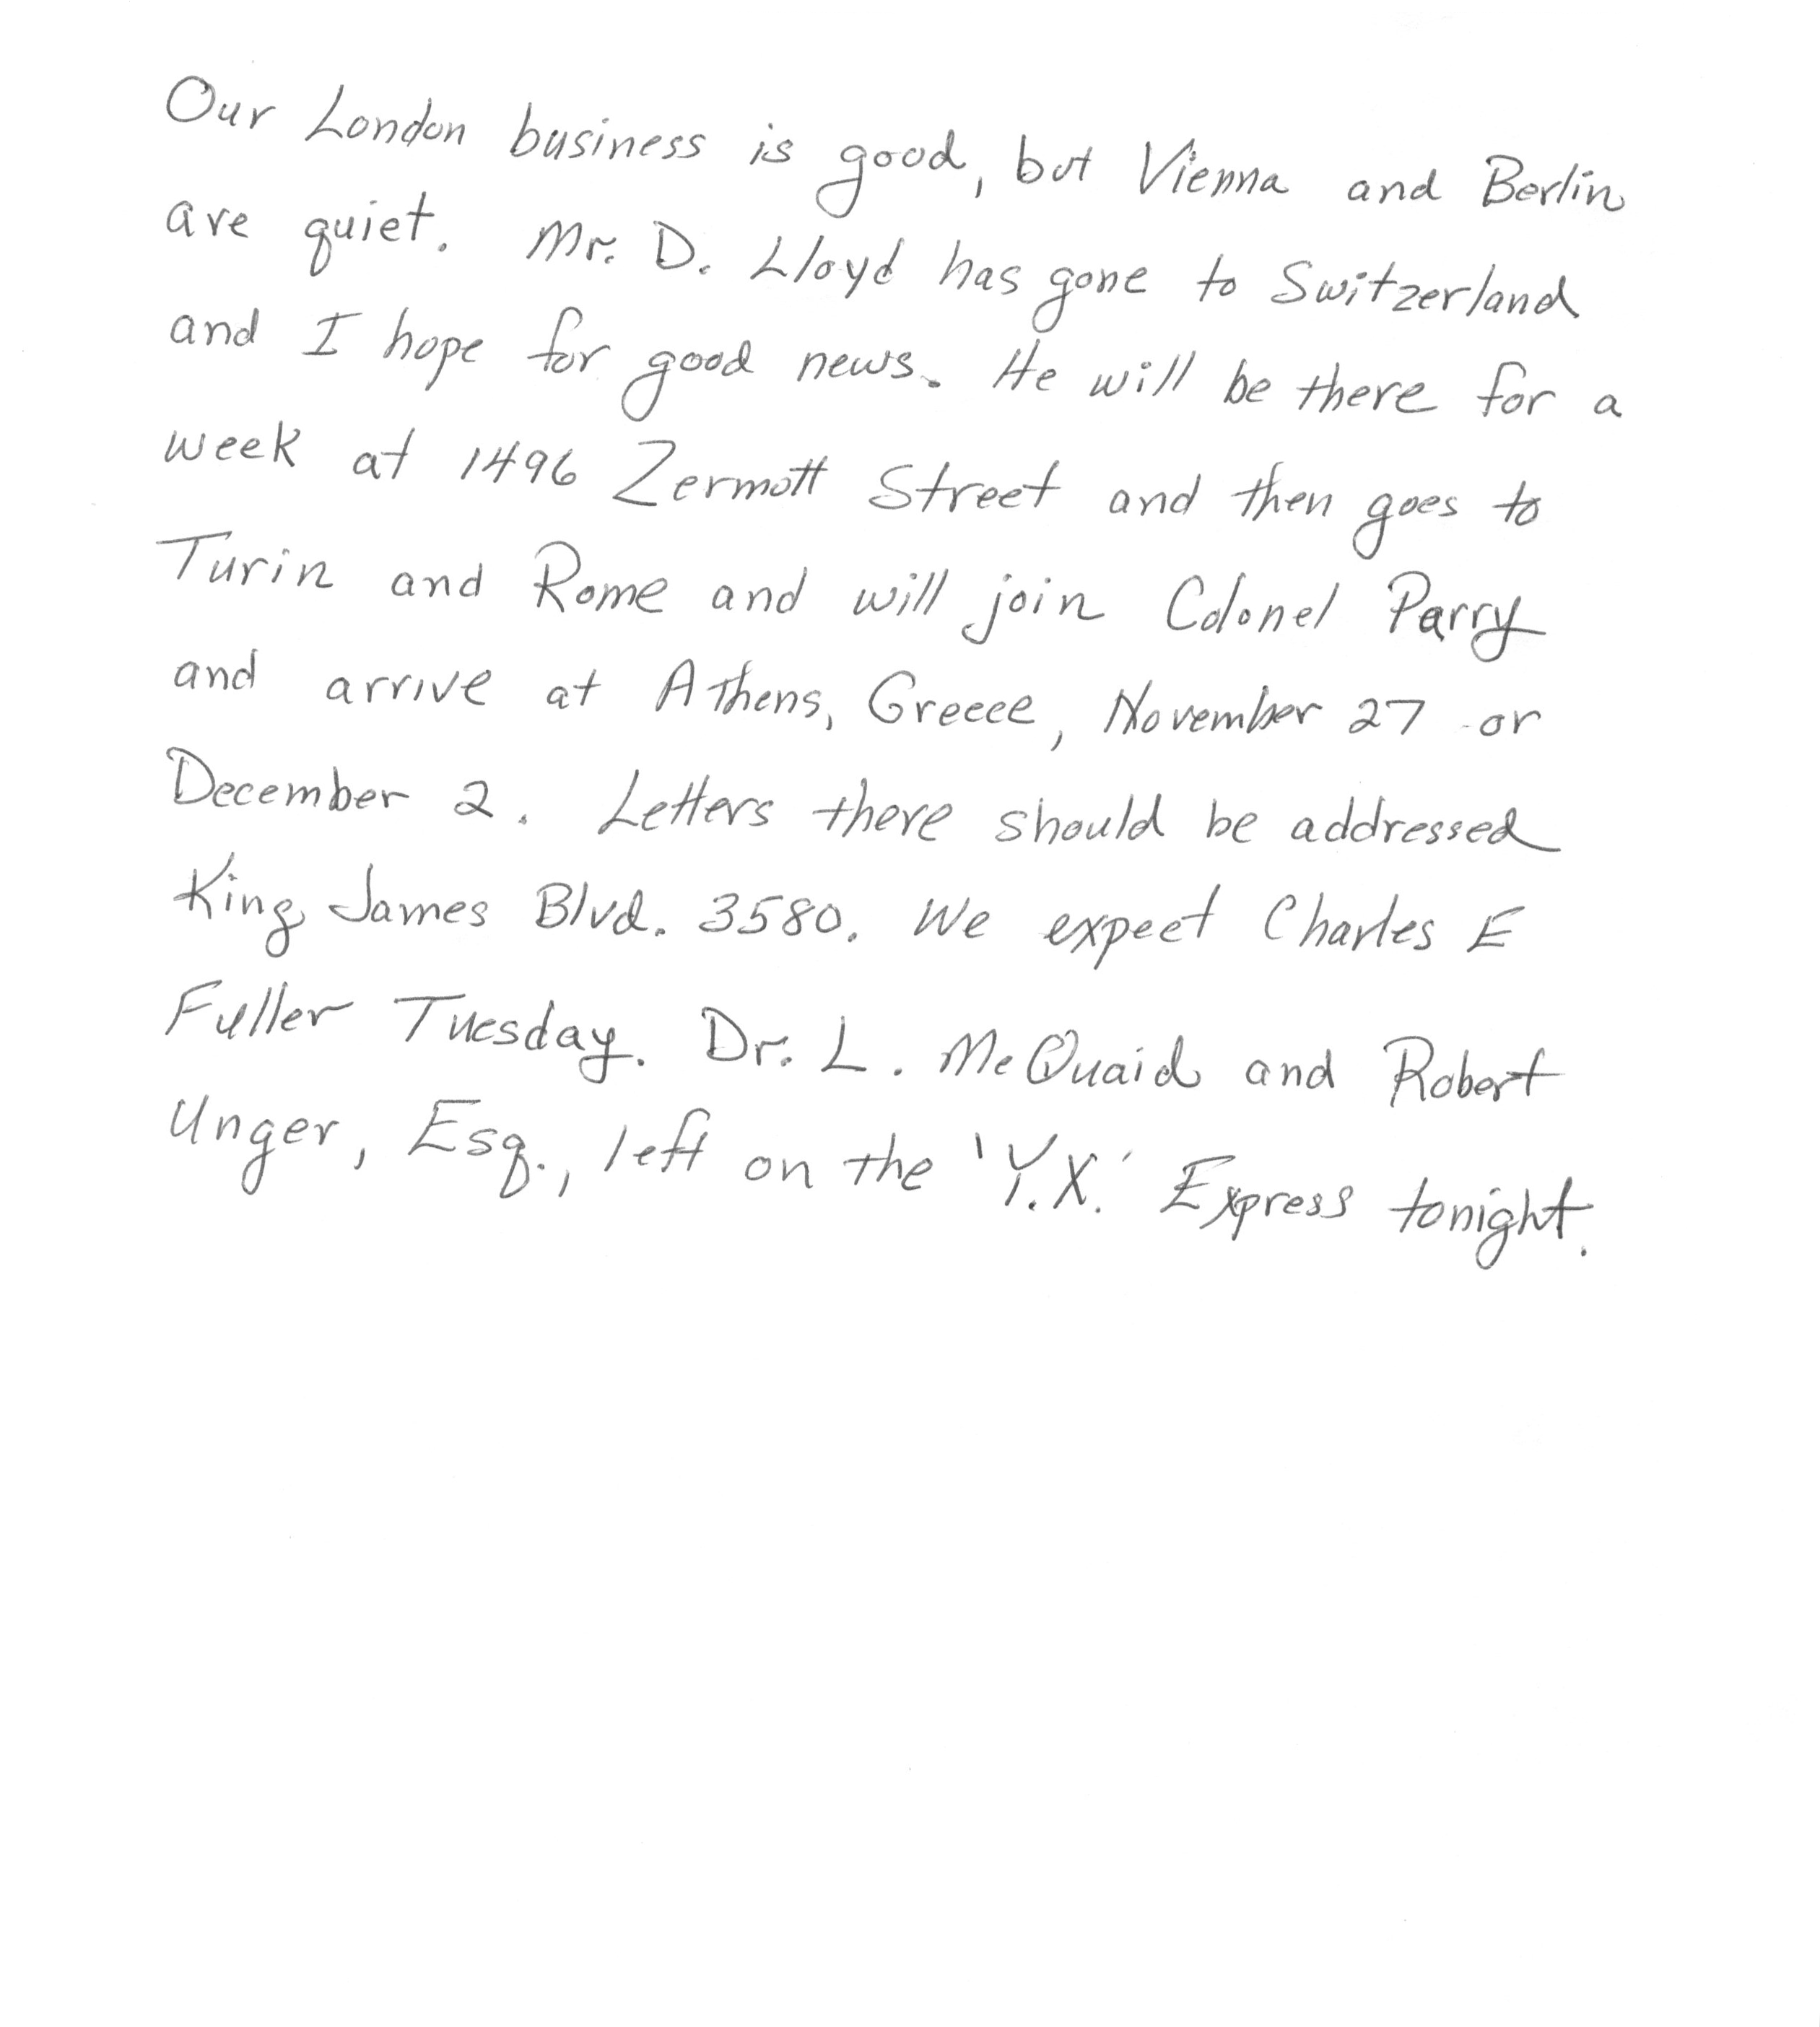 Our London business is good, but Vienna and Berlin
are quiet. Mr. D. Lloyd has gone to Switzerland
and I hope for good news. He will be there for a
week at 1496 Zermott Street and then goes to
Turin and Rome and will join Colonel Parry
and arrive at Athens, Greece, November 27 or
December 2. Letters there should be addressed
King James Blvd. 3580. We expect Charles E
Fuller Tuesday. Dr. L. McQuaid and Robert
Unger, Esq., left on the 'Y.X.' Express tonight.